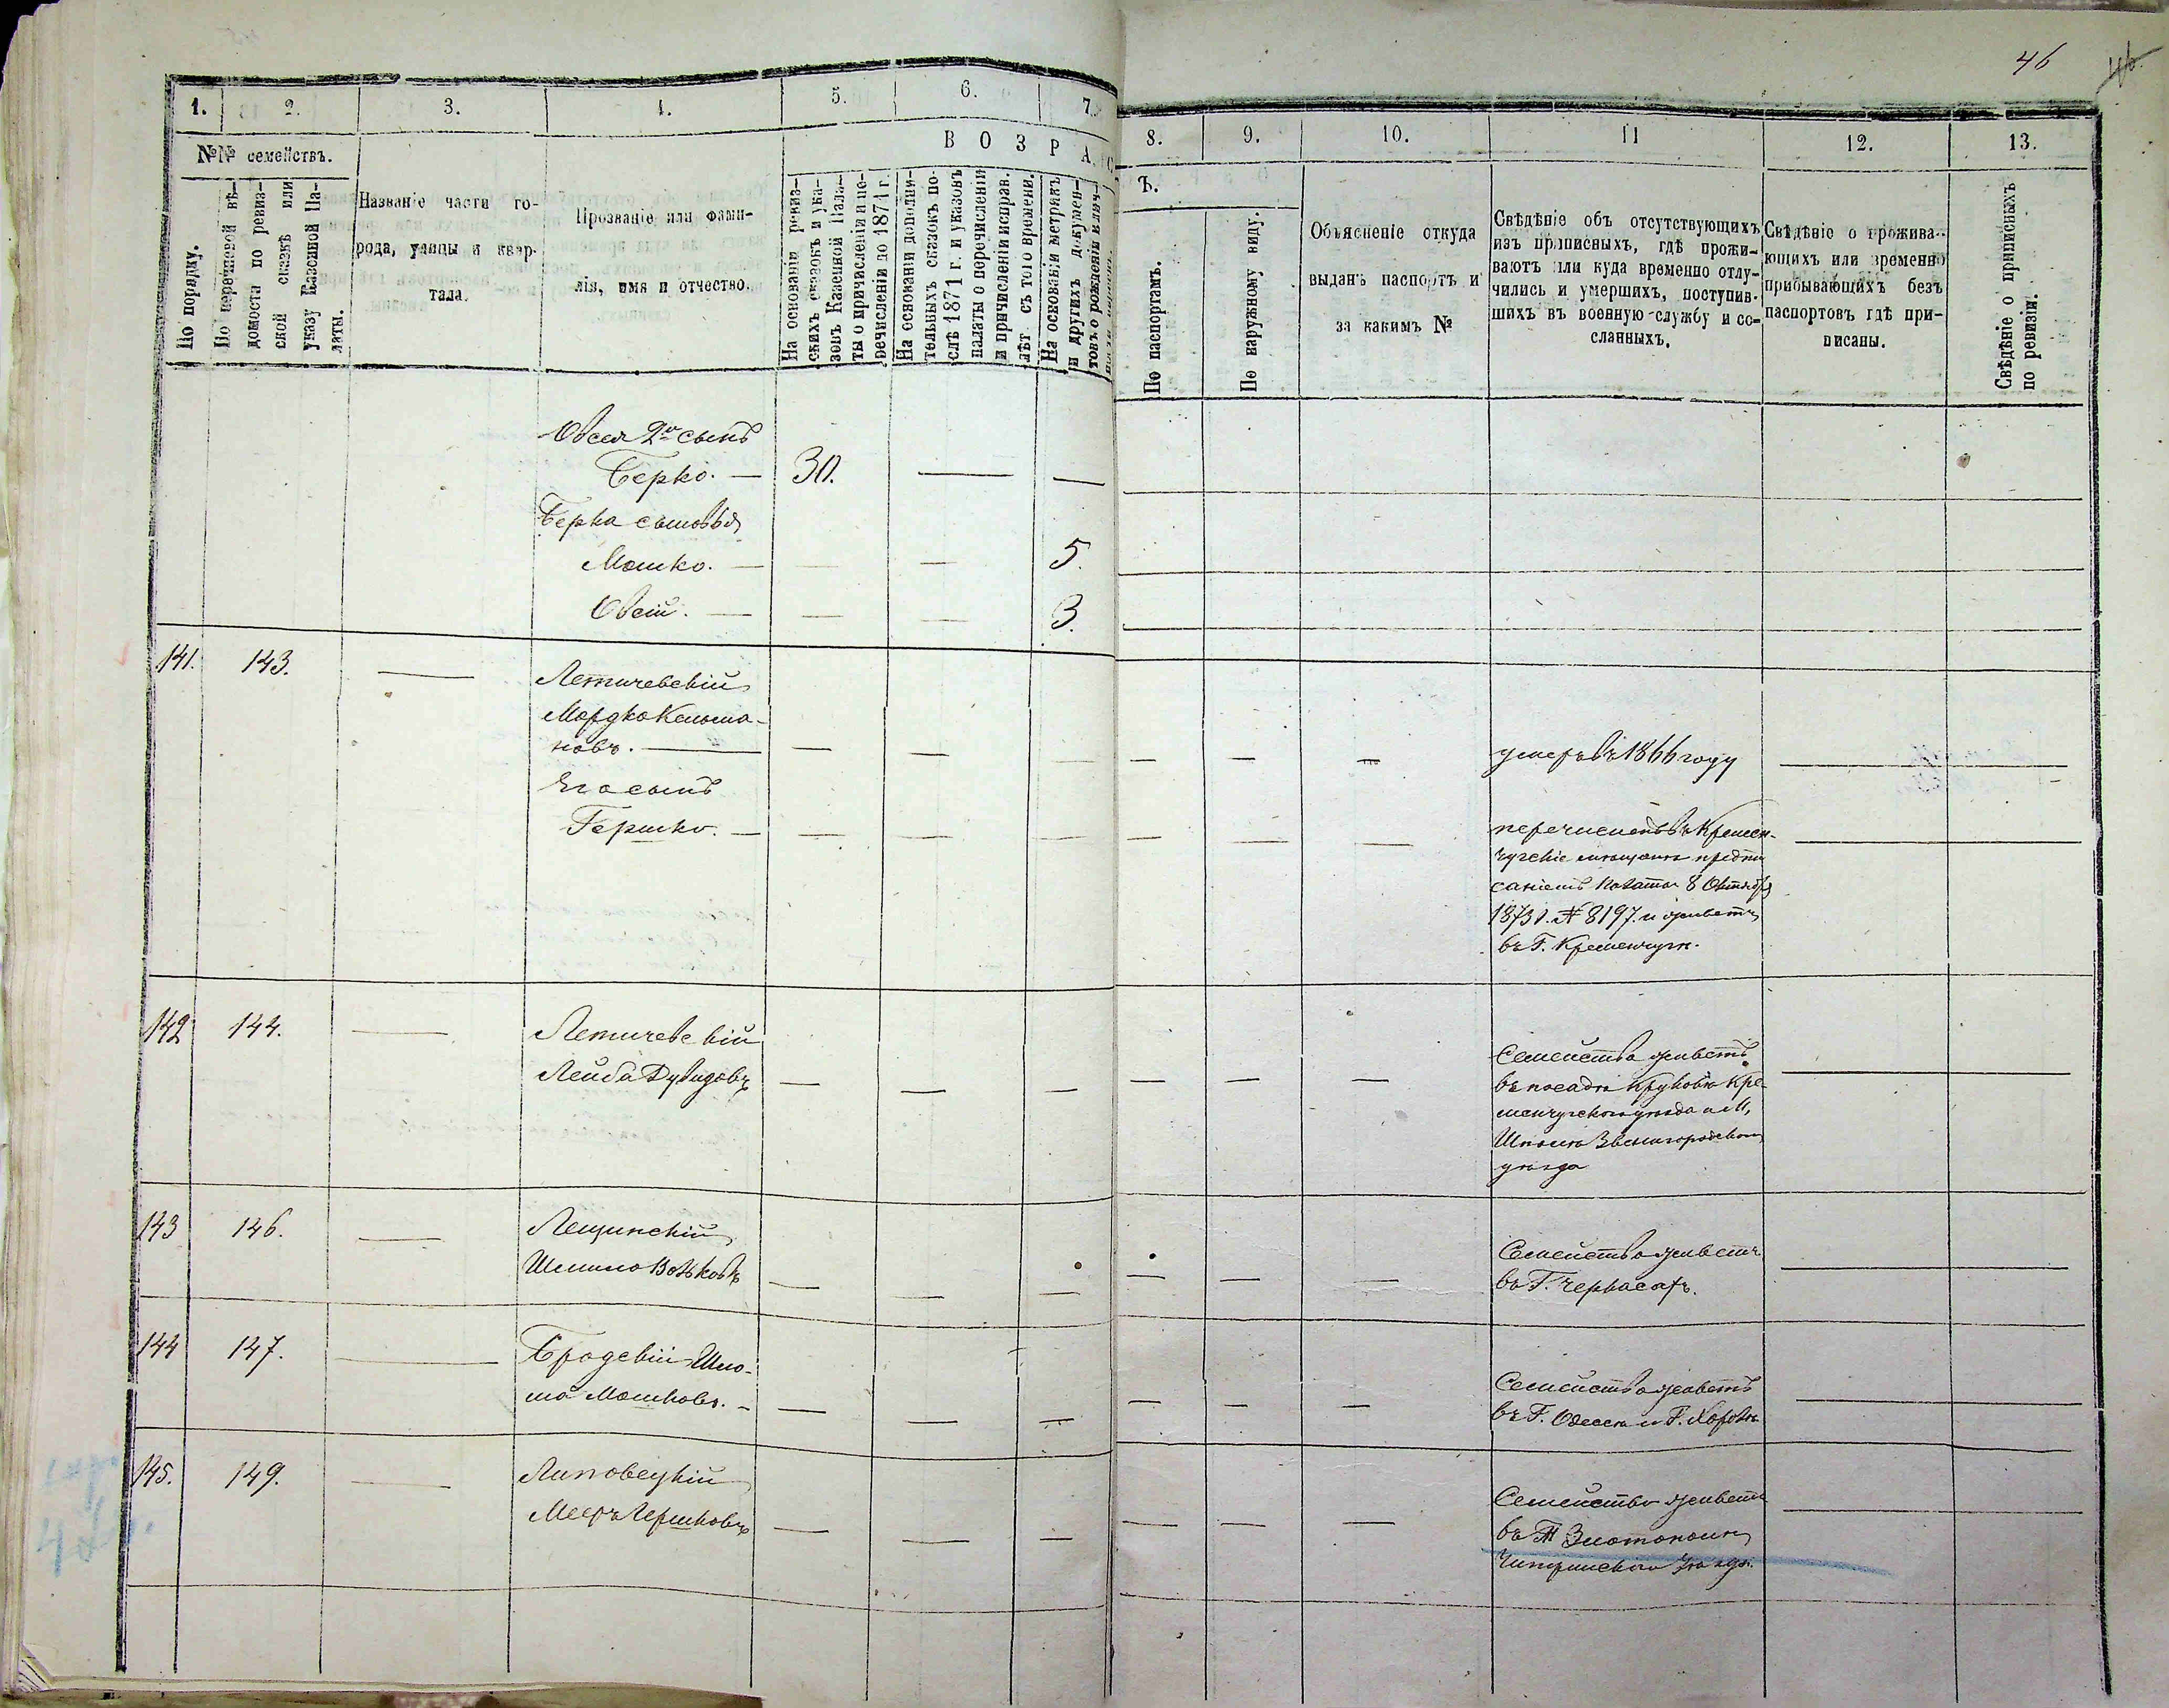 46
1. 2. 3. 4. 5. 6. 7. 8. 9. 10. 11 12. 13.
№№ семействъ.
В О З Р А С Ъ.
По порядку.
По перечневой вѣ-
домости по ревиз-
ской сказкѣ или
указу Казенной Па-
латы.
Названіе части го-
рода, улицы и квар-
тала.
Прозваніе или фами-
лія, имя и отчество.
На основаніи ревиз-
скихъ сказокъ и ука-
зовъ Казенной Пала-
ты о причисленіи и пе-
речисленіи по 1871 г.
На основаніи дополни-
тельныхъ сказокъ по-
слѣ 1871 г. и указовъ
палаты о перечисленіи
и причисленіи исправ.
лѣт съ того времени.
На основаніи метрикъ
и другихъ докумен-
товъ о рожденіи
По паспортамъ.
По наружному виду.
Объясненіе откуда
выданъ паспортъ и
за какимъ №
Свѣдѣніе объ отсутствующихъ
изъ приписныхъ, гдѣ прожи-
ваютъ или куда временно отлу-
чились и умершихъ, поступив-
шихъ въ военную службу и со-
сланныхъ.
Свѣдѣніе о прожива-
ющихъ или временно
прибывающихъ безъ
паспортовъ гдѣ при-
писаны.
Свѣдѣніе о приписныхъ
по ревизіи.
Овсея 2й сынъ
Берко. — 30. — —
Берка сыновья
Мошко. — — — 5.
Овсій. — — — 3.
141. 143. — Летичевскій
Мордко Кельма-
новъ. — — — — — — — умеръ въ 1866 году —
Его сынъ
Гершко. — — — — — — перечисленъ въ Кремен-
чугскіе мѣщане предпи
саніемъ Палаты 8 Октября
1873 г. № 8197. и живетъ
въ Г. Кременчугѣ.
142 144. — Летичевскій
Лейба Дувидовъ — — — — — — Семейство живетъ
въ посадѣ Крюковѣ Кре-
менчугского уѣзда и М,
Шполѣ Звенигородского
уѣзда
143 146. — Лещинскій
Шлиома Волковъ — — — — — — Семейство живетъ
въ Г. Черкасахъ.
144 147. — Бродскій Шлю-
ма Мошковъ. — — — — — — Семейство живетъ
въ Г. Одессѣ и Г. Хоролѣ
145. 149. — Липовецкій
Мееръ Гершковъ — — — — — — Семейство живетъ
въ М Златополѣ
Чигиринскаго Уѣзда.